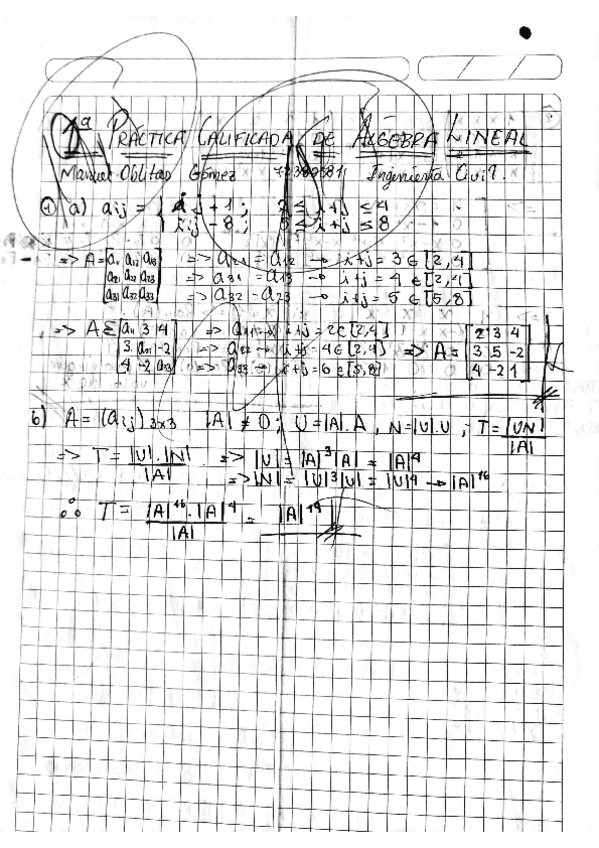 1ª PRÁCTICA CALIFICADA DE ALGEBRA LINEAL
Manuel Oblitas Gómez Ingeniería Civil.
① a) aij = { i.j + 1 ; 2 ≤ i+j ≤ 4
i.j - 8 ; 5 ≤ i+j ≤ 8
=> A = [a11 a12 a13 => a21 = a12 → i+j = 3 ∈ [2,4]
a21 a22 a23 => a31 = a13 → i+j = 4 ∈ [2,4]
a31 a32 a33] => a32 = a23 → i+j = 5 ∈ [5,8]
=> A = [a11 3 4 => a11 → i+j = 2 ∈ [2,4] [2 3 4
3 a22 -2 => a22 → i+j = 4 ∈ [2,4] => A = 3 5 -2
4 -2 a33] => a33 → i+j = 6 ∈ [5,8] 4 -2 1]
b) A = (aij)3x3 |A| ≠ 0 ; U = |A|.A , N = |U|.U ; T = |UN| / |A|
=> T = |U|.|N| / |A| => |U| = |A|³|A| = |A|⁴
=> |N| = |U|³|U| = |U|⁴ → |A|¹⁶
∴ T = |A|¹⁶.|A|⁴ / |A| = |A|¹⁹